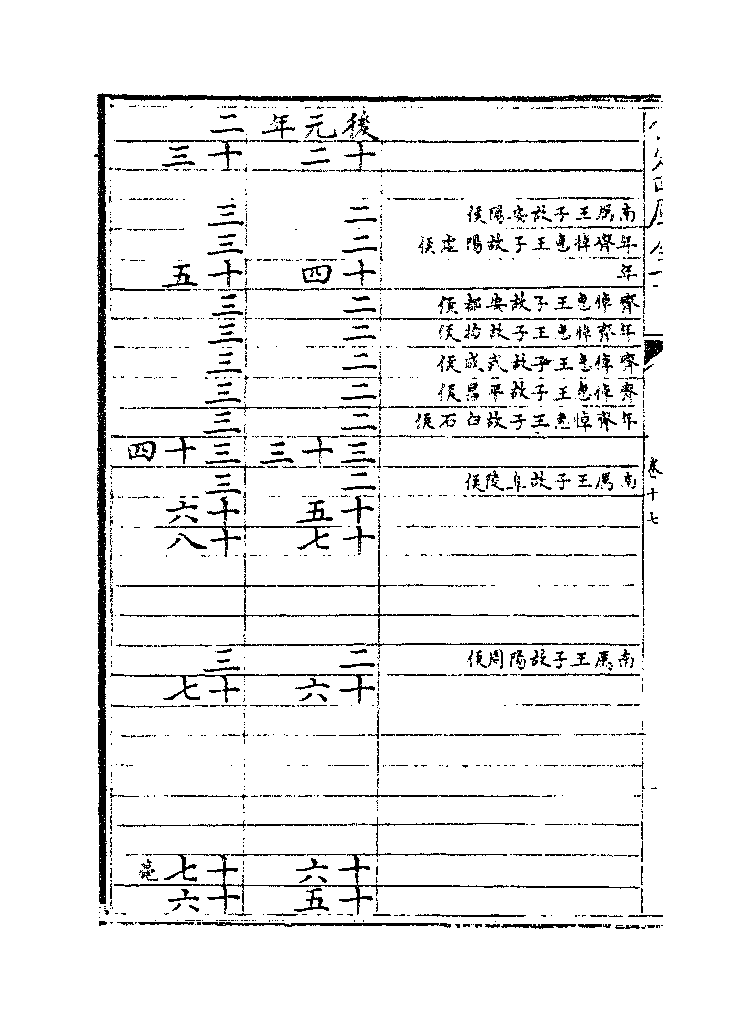 卷十七
南厲王子故安陽侯
年齊悼惠王子故陽虚侯
年
齊悼惠王子故安都侯
年齊悼惠王子故扐侯
齊悼惠王子故武成侯
齊悼惠王子故平昌侯
年齊悼惠王子故白石侯
南厲王子故阜陵侯
南厲王子故陽周侯
後元年
十二
二
二
十四
二
二
二
二
二
三十三
二
十五
十七
二
十六
十六
十五
二
十三
三
三
十五
三
三
三
三
三
三十四
三
十六
十八
三
十七
十七薨
十六